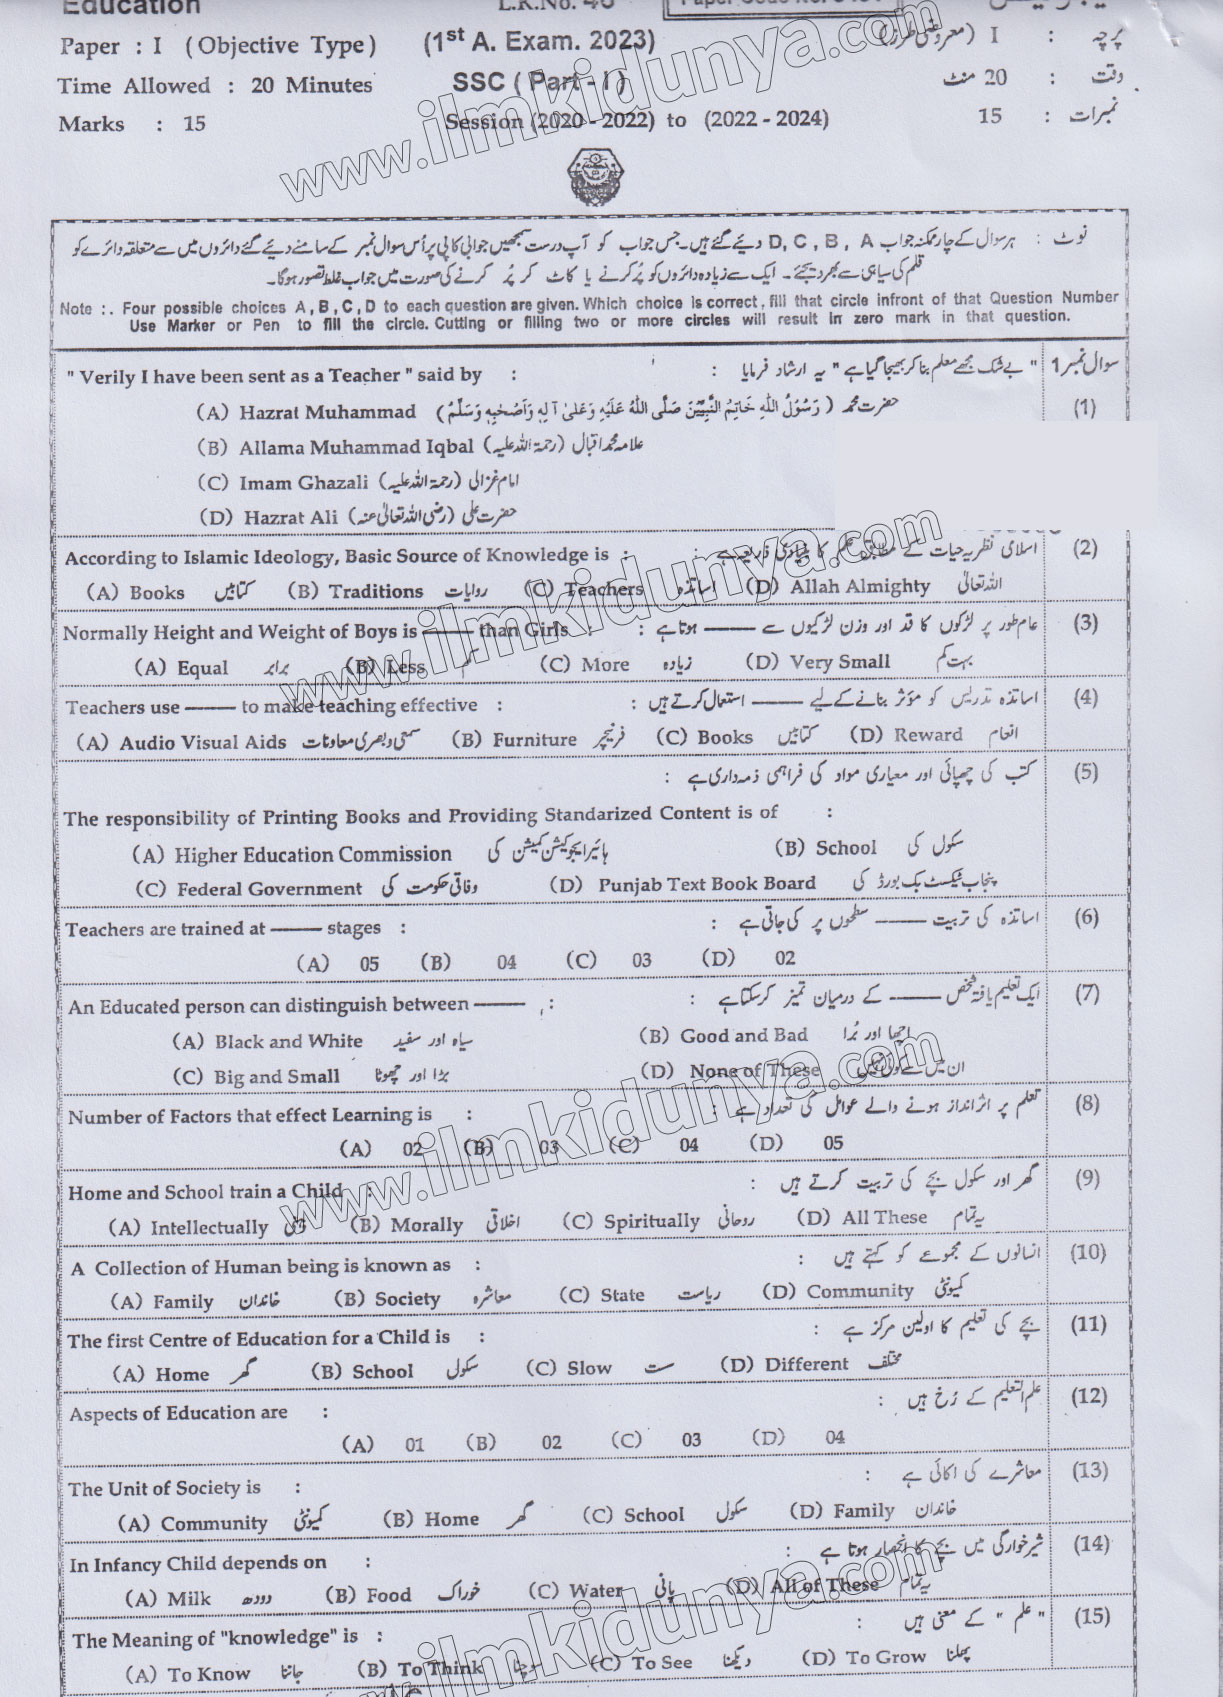 Education L.K.No. 46 Paper Code No.
Paper : I ( Objective Type ) (1st A. Exam. 2023) پرچہ : I (معروضی طرز)
Time Allowed : 20 Minutes SSC ( Part - I ) وقت : 20 منٹ
Marks : 15 Session (2020 - 2022) to (2022 - 2024) نمبرات : 15
نوٹ : ہر سوال کے چار ممکنہ جواب D, C, B, A دیئے گئے ہیں۔ جس جواب کو آپ درست سمجھیں جوابی کاپی پر اُس سوال نمبر کے سامنے دیئے گئے دائروں میں سے متعلقہ دائرے کو
قلم کی سیاہی سے بھر دیجئے۔ ایک سے زیادہ دائروں کو پُر کرنے یا کاٹ کر پُر کرنے کی صورت میں جواب غلط تصور ہوگا۔
Note :. Four possible choices A , B , C , D to each question are given. Which choice is correct , fill that circle infront of that Question Number
Use Marker or Pen to fill the circle. Cutting or filling two or more circles will result in zero mark in that question.
" Verily I have been sent as a Teacher " said by : " بے شک مجھے معلم بنا کر بھیجا گیا ہے " یہ ارشاد فرمایا : سوال نمبر 1
(A) Hazrat Muhammad حضرت محمد (رَسُوْلُ اللّٰہِ خَاتِمُ النَّبِیّٖنَ صَلَّی اللّٰہُ عَلَیْہِ وَعَلیٰ آلِہٖ وَاَصْحٰبِہٖ وَسَلَّمْ) (1)
(B) Allama Muhammad Iqbal علامہ محمد اقبال (رحمۃ اللہ علیہ)
(C) Imam Ghazali امام غزالی (رحمۃ اللہ علیہ)
(D) Hazrat Ali حضرت علی (رضی اللہ تعالیٰ عنہ)
According to Islamic Ideology, Basic Source of Knowledge is : اسلامی نظریہ حیات کے مطابق علم کا بنیادی ذریعہ ہے : (2)
(A) Books کتابیں (B) Traditions روایات (C) Teachers اساتذہ (D) Allah Almighty اللہ تعالیٰ
Normally Height and Weight of Boys is ——— than Girls : عام طور پر لڑکوں کا قد اور وزن لڑکیوں سے ——— ہوتا ہے : (3)
(A) Equal برابر (B) Less کم (C) More زیادہ (D) Very Small بہت کم
Teachers use ——— to make teaching effective : اساتذہ تدریس کو مؤثر بنانے کے لیے ——— استعمال کرتے ہیں : (4)
(A) Audio Visual Aids سمعی و بصری معاونات (B) Furniture فرنیچر (C) Books کتابیں (D) Reward انعام
کتب کی چھپائی اور معیاری مواد کی فراہمی ذمہ داری ہے : (5)
The responsibility of Printing Books and Providing Standarized Content is of :
(A) Higher Education Commission ہائیر ایجوکیشن کمیشن کی (B) School سکول کی
(C) Federal Government وفاقی حکومت کی (D) Punjab Text Book Board پنجاب ٹیکسٹ بک بورڈ کی
Teachers are trained at ——— stages : اساتذہ کی تربیت ——— سطحوں پر کی جاتی ہے : (6)
(A) 05 (B) 04 (C) 03 (D) 02
An Educated person can distinguish between ——— : ایک تعلیم یافتہ شخص ——— کے درمیان تمیز کر سکتا ہے : (7)
(A) Black and White سیاہ اور سفید (B) Good and Bad اچھا اور بُرا
(C) Big and Small بڑا اور چھوٹا (D) None of These ان میں سے کوئی نہیں
Number of Factors that effect Learning is : تعلم پر اثر انداز ہونے والے عوامل کی تعداد ہے : (8)
(A) 02 (B) 03 (C) 04 (D) 05
Home and School train a Child : گھر اور سکول بچے کی تربیت کرتے ہیں : (9)
(A) Intellectually ذہنی (B) Morally اخلاقی (C) Spiritually روحانی (D) All These یہ تمام
A Collection of Human being is known as : انسانوں کے مجموعے کو کہتے ہیں : (10)
(A) Family خاندان (B) Society معاشرہ (C) State ریاست (D) Community کمیونٹی
The first Centre of Education for a Child is : بچے کی تعلیم کا اولین مرکز ہے : (11)
(A) Home گھر (B) School سکول (C) Slow ست (D) Different مختلف
Aspects of Education are : علم التعلیم کے رُخ ہیں : (12)
(A) 01 (B) 02 (C) 03 (D) 04
The Unit of Society is : معاشرے کی اکائی ہے : (13)
(A) Community کمیونٹی (B) Home گھر (C) School سکول (D) Family خاندان
In Infancy Child depends on : شیر خوارگی میں بچے کا انحصار ہوتا ہے : (14)
(A) Milk دودھ (B) Food خوراک (C) Water پانی (D) All of These یہ تمام
The Meaning of "knowledge" is : " علم " کے معنی ہیں : (15)
(A) To Know جاننا (B) To Think سوچنا (C) To See دیکھنا (D) To Grow پھلنا
www.ilmkidunya.com
www.ilmkidunya.com
www.ilmkidunya.com
www.ilmkidunya.com